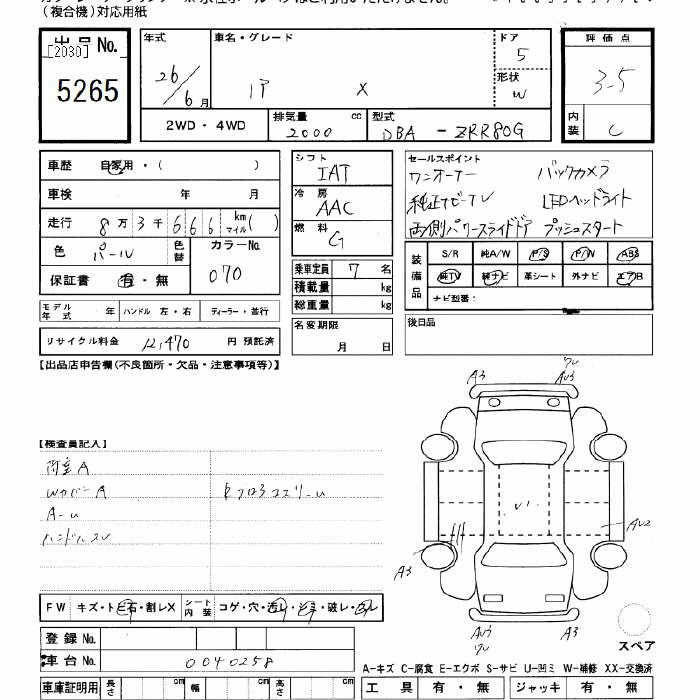 (複合機)対応用紙
出品No.
[2030]
5265
年式
26/6月
車名・グレード
X
ドア
5
形状
W
評価点
3.5
内装
C
2WD・4WD
排気量
2000
cc
型式
DBA - ZRR80G
車歴 自家用・( )
車検 年 月
走行 8万3千666 km マイル( )
色 パール 色替
カラーNo. 070
保証書 有・無
シフト
IAT
冷房
AAC
燃料
G
セールスポイント
ワンオーナー バックカメラ
純正ナビTV LEDヘッドライト
両側パワースライドドア プッシュスタート
装備品
S/R 純A/W P/S P/W ABS
純TV 純ナビ 革シート 外ナビ エアB
ナビ型番:
乗車定員 7 名
積載量 kg
総重量 kg
モデル年式 年 ハンドル 左・右 ディーラー・並行
名変期限
月 日
後日品
リサイクル料金 12,470 円 預託済
【出品店申告欄(不良箇所・欠品・注意事項等)】
A3 ワレ AU3
【検査員記入】
荷室A
Wカバー A
A-U
ハンドルスレ
V1
AU2
A3
FW キズ・トビ石・割レX
シート内装 コゲ・穴・汚レ・シミ・破レ・スレ
AU3 ワレ
A3
スペア
登録No.
車台No. 0040258
A-キズ C-腐食 E-エクボ S-サビ U-凹ミ W-補修 XX-交換済
車庫証明用 長さ cm 幅 cm 高さ cm
工具 有・無 ジャッキ 有・無